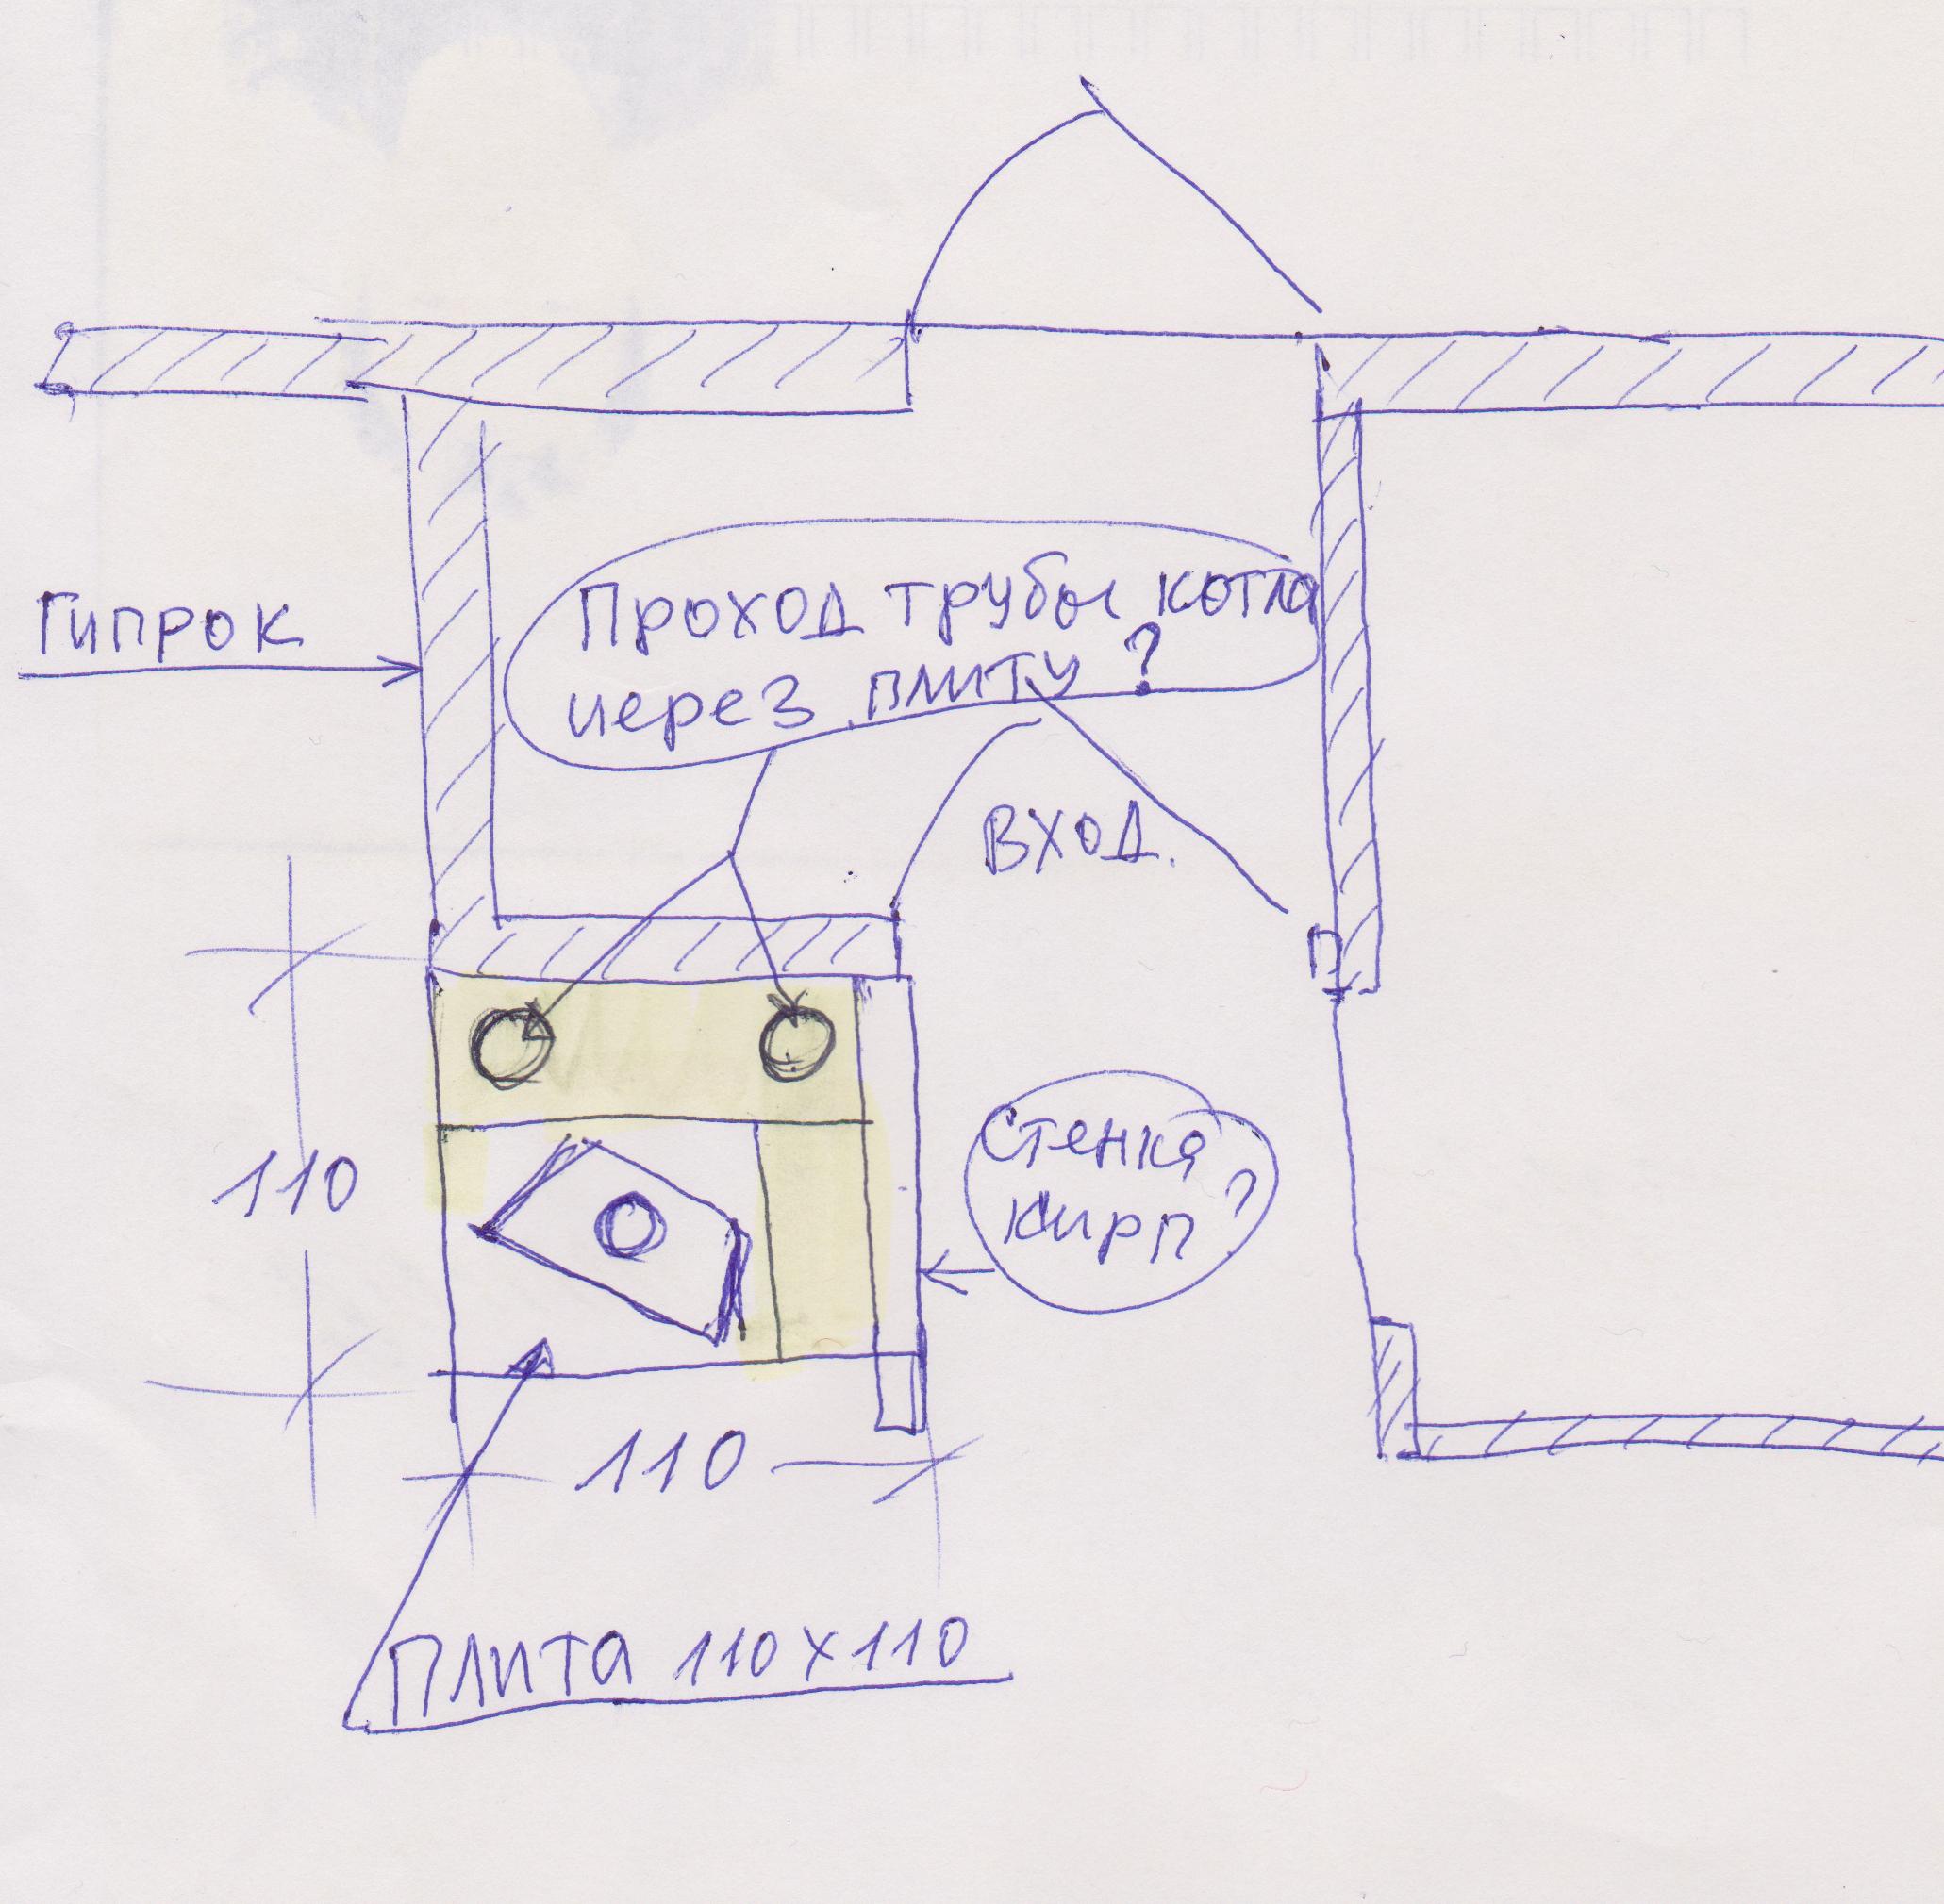 Гипрок
Проход трубы котла
через плиту?
Вход.
Стенка
кирп?
110
110
Плита 110х110